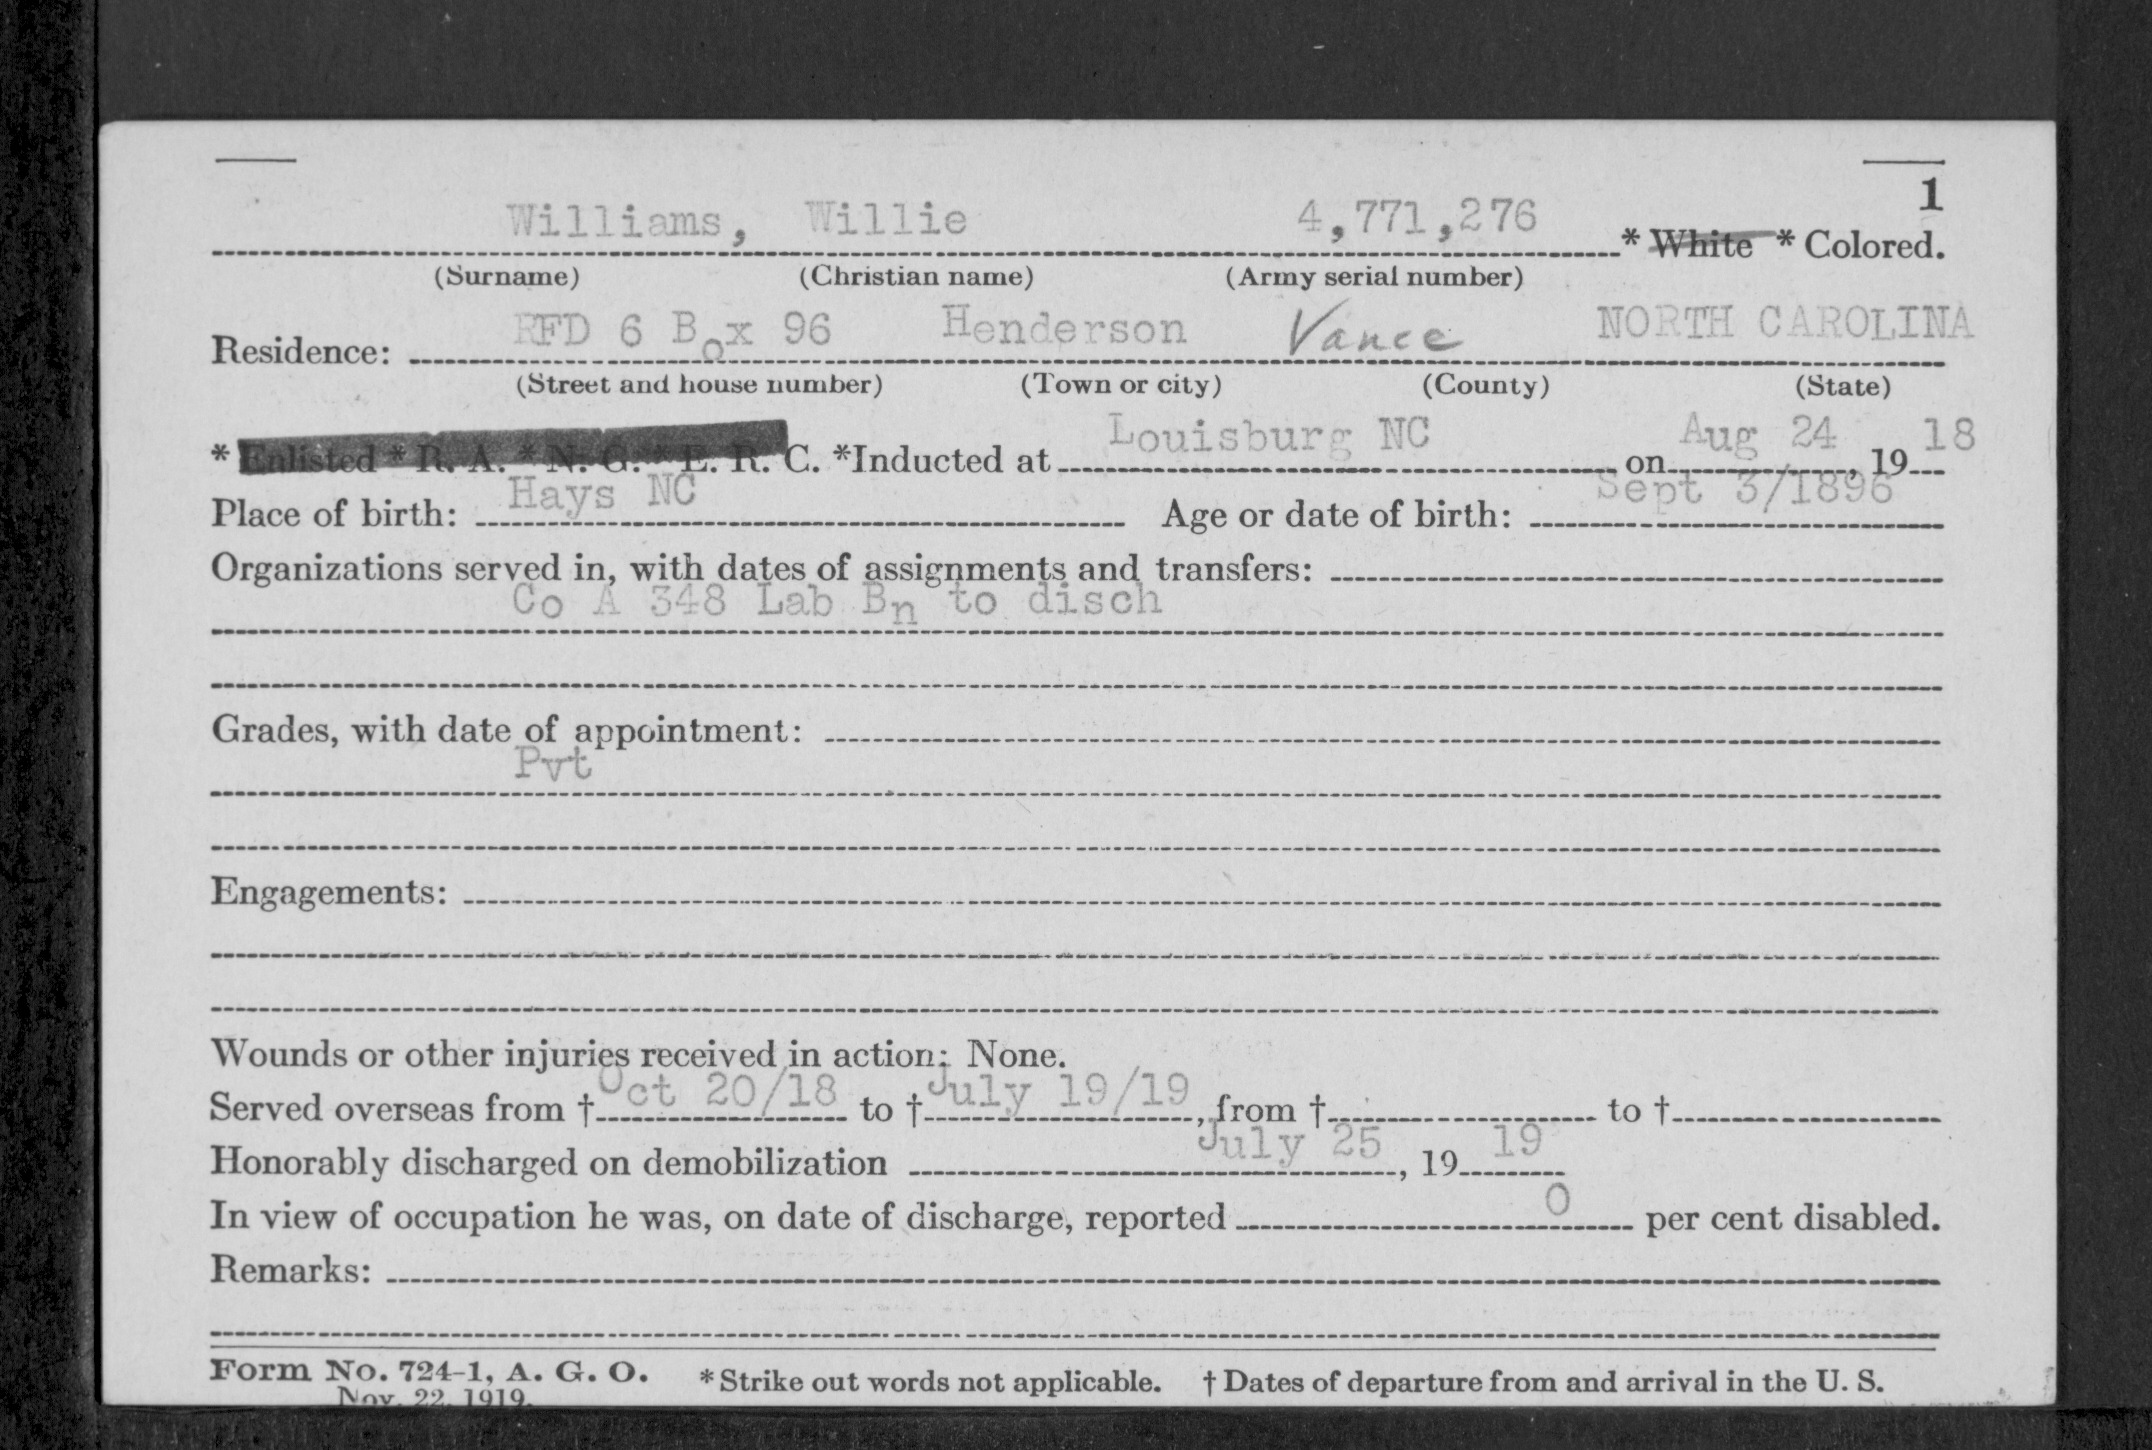 1
Williams, Willie 4,771,276 * White * Colored.
(Surname) (Christian name) (Army serial number)
Residence: RFD 6 Box 96 Henderson Vance NORTH CAROLINA
(Street and house number) (Town or city) (County) (State)
* Enlisted * R. A. * N. G. * E. R. C. *Inducted at Louisburg NC on Aug 24, 19 18
Place of birth: Hays NC Age or date of birth: Sept 3/1896
Organizations served in, with dates of assignments and transfers:
Co A 348 Lab Bn to disch
Grades, with date of appointment:
Pvt
Engagements:
Wounds or other injuries received in action: None.
Served overseas from † Oct 20/18 to † July 19/19, from † to †
Honorably discharged on demobilization July 25, 19 19
In view of occupation he was, on date of discharge, reported 0 per cent disabled.
Remarks:
Form No. 724-1, A. G. O. * Strike out words not applicable. † Dates of departure from and arrival in the U. S.
Nov. 22, 1919.